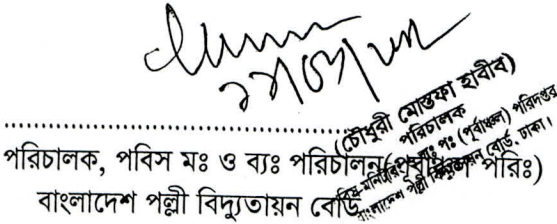 (চৌধুরী মোস্তফা হাবীব)
পরিচালক
পবিস-মনিটরিং ও ব্যঃ পঃ (পূর্বাঞ্চল) পরিদপ্তর
বাংলাদেশ পল্লী বিদ্যুতায়ন বোর্ড, ঢাকা।
পরিচালক, পবিস মঃ ও ব্যঃ পরিচালন(পূর্বাঞ্চল পরিঃ)
বাংলাদেশ পল্লী বিদ্যুতায়ন বোর্ড